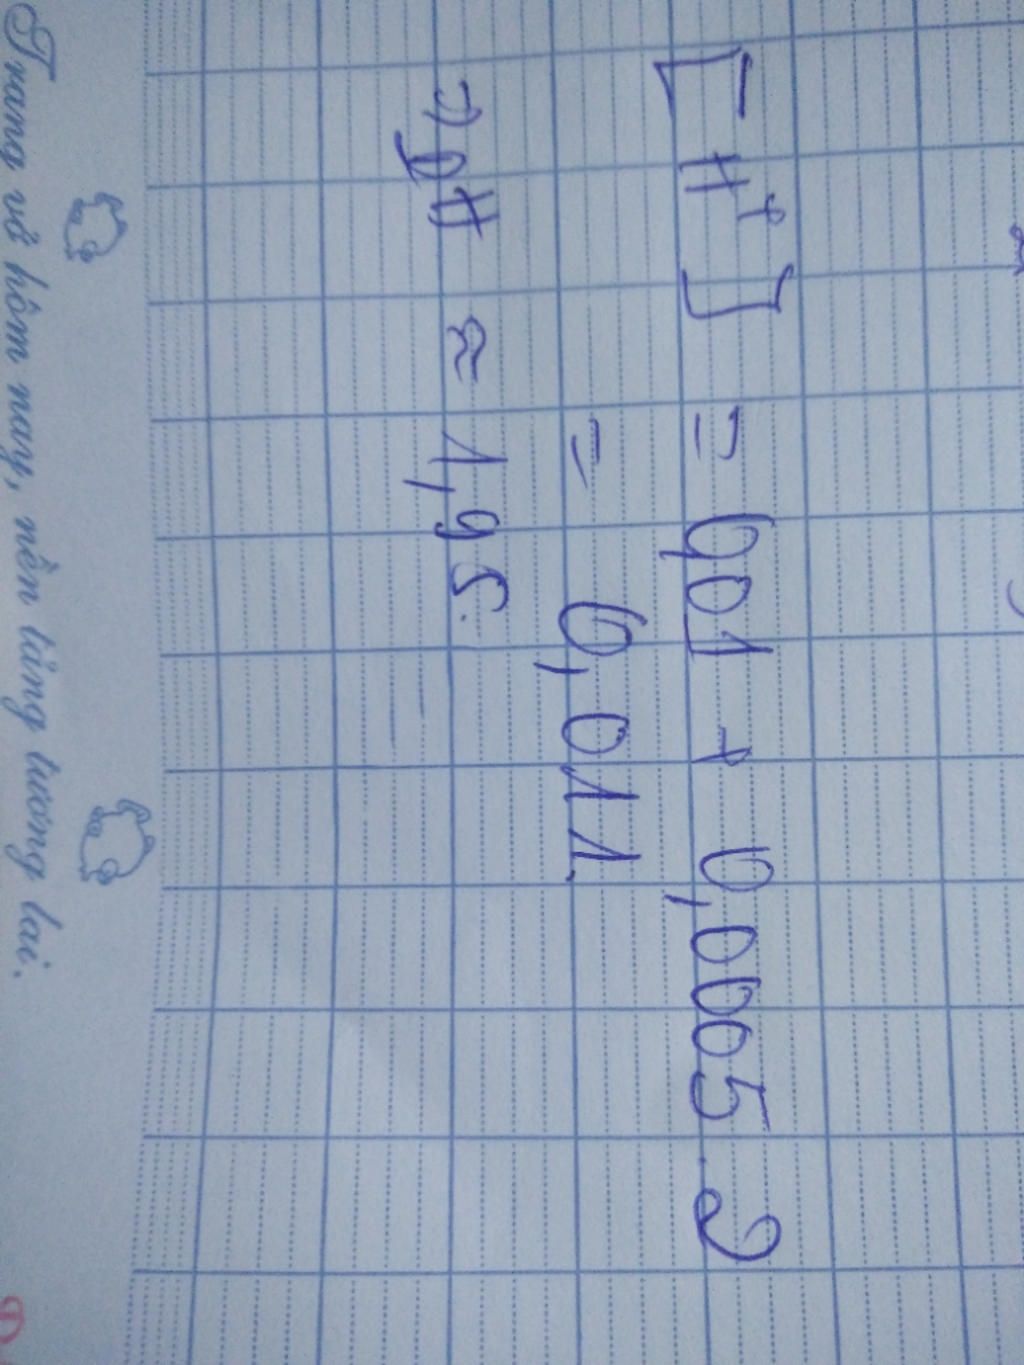 [H⁺] = 0,01 + 0,0005.2
= 0,011.
=> pH ≈ 1,95.
Trang vở hôm nay, nền tảng tương lai.